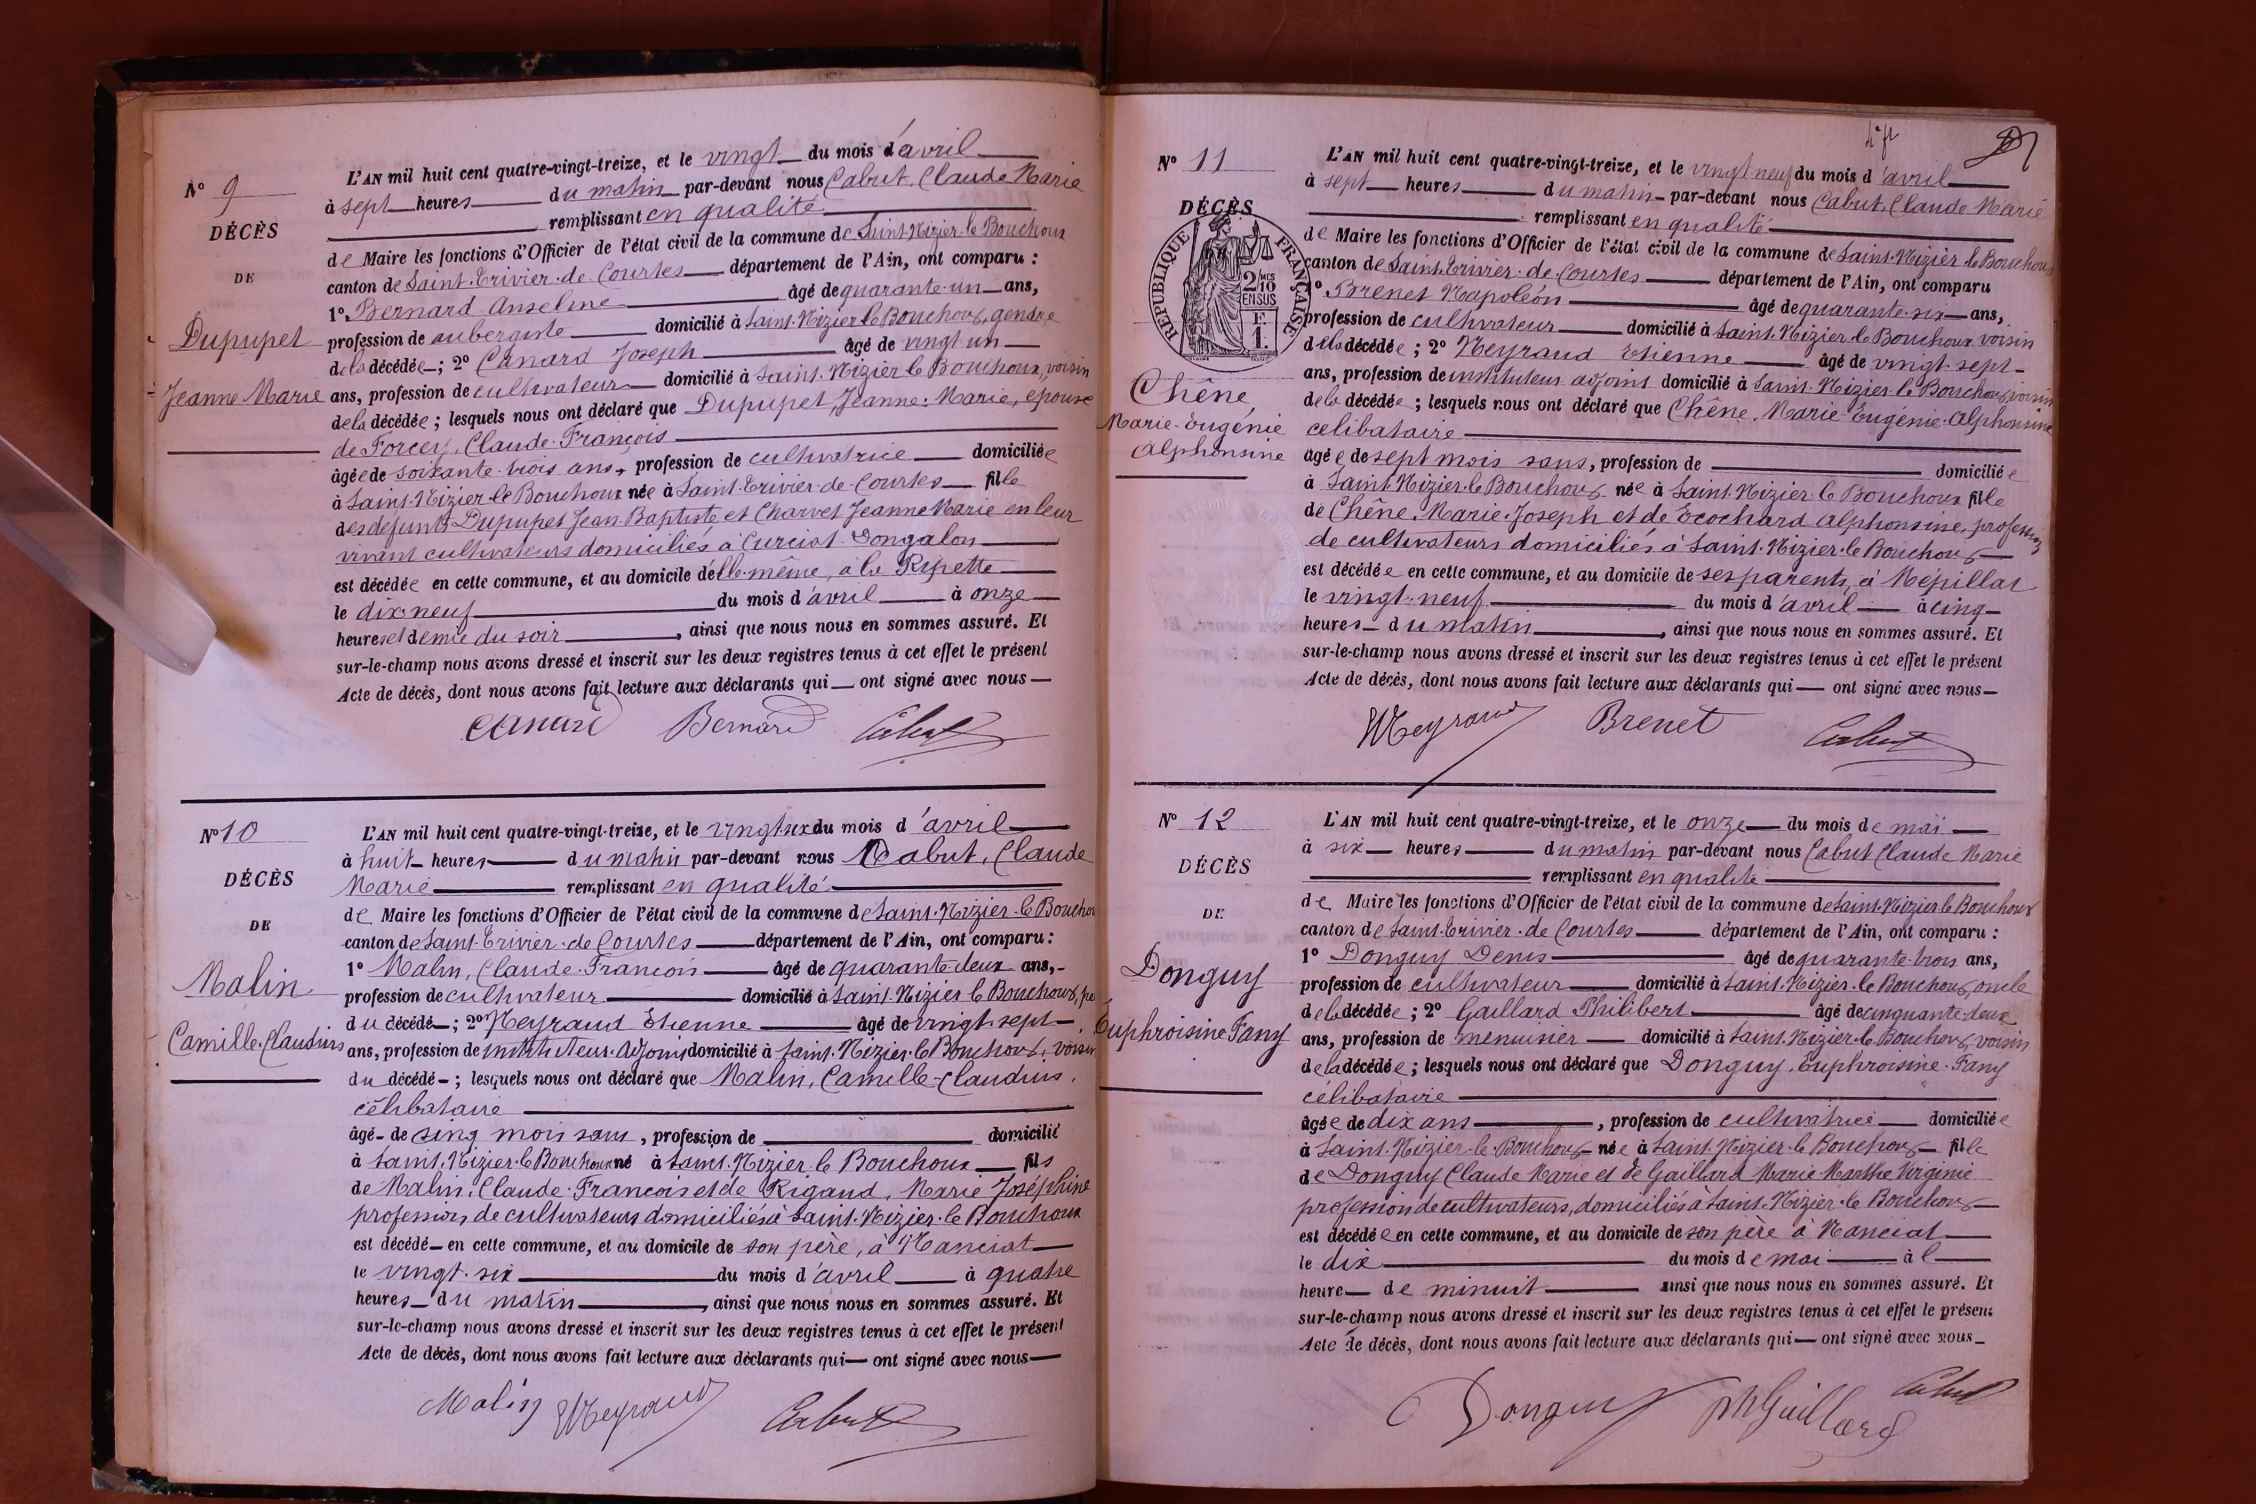 N° 9
DÉCÈS
DE
Dupupet
Jeanne Marie
L'AN mil huit cent quatre-vingt-treize, et le vingt du mois d'avril
à sept heures du matin par-devant nous Cabut, Claude Marie
remplissant en qualité
de Maire les fonctions d'Officier de l'état civil de la commune de Saint-Nizier-le Bouchoux
canton de Saint-Trivier-de-Courtes département de l'Ain, ont comparu :
1° Bernard Anselme âgé de quarante-un ans,
profession de aubergiste domicilié à Saint-Nizier le Bouchoux, gendre
de la décédée ; 2° Canard Joseph âgé de vingt un
ans, profession de cultivateur domicilié à Saint-Nizier le Bouchoux, voisin
de la décédée ; lesquels nous ont déclaré que Dupupet, Jeanne-Marie, épouse
de Forcey, Claude-François
âgée de soixante-trois ans, profession de cultivatrice domiciliée
à Saint-Nizier le Bouchoux née à Saint-Trivier-de-Courtes fille
des défunts Dupupet Jean Baptiste et Charvet Jeanne Marie en leur
vivant cultivateurs domiciliés à Curciat-Dongalon
est décédée en cette commune, et au domicile d'elle-même, à la Ripette
le dix-neuf du mois d'avril à onze
heures et demie du soir, ainsi que nous nous en sommes assuré. Et
sur-le-champ nous avons dressé et inscrit sur les deux registres tenus à cet effet le présent
Acte de décès, dont nous avons fait lecture aux déclarants qui ont signé avec nous
Canard Bernard Cabut
N° 10
DÉCÈS
DE
Malin
Camille-Claudius
L'AN mil huit cent quatre-vingt-treize, et le vingt six du mois d'avril
à huit heures du matin par-devant nous Cabut, Claude
Marie remplissant en qualité
de Maire les fonctions d'Officier de l'état civil de la commune de Saint-Nizier-le Bouchou
canton de Saint-Trivier-de Courtes département de l'Ain, ont comparu :
1° Malin, Claude-François âgé de quarante-deux ans,
profession de cultivateur domicilié à Saint-Nizier le Bouchoux, pè
du décédé ; 2° Neyraud Etienne âgé de vingt-sept
ans, profession de instituteur-adjoint domicilié à Saint-Nizier-le Bouchoux, voisin
du décédé ; lesquels nous ont déclaré que Malin, Camille-Claudius,
célibataire
âgé de cinq mois sans, profession de domicilié
à Saint-Nizier-le Bouchoux né à Saint-Nizier le Bouchoux fils
de Malin, Claude-François et de Rigaud, Marie Joséphine
profession de cultivateurs domiciliés à Saint-Nizier-le Bouchoux
est décédé en cette commune, et au domicile de son père, à Manciat
le vingt-six du mois d'avril à quatre
heures du matin, ainsi que nous nous en sommes assuré. Et
sur-le-champ nous avons dressé et inscrit sur les deux registres tenus à cet effet le présent
Acte de décès, dont nous avons fait lecture aux déclarants qui ont signé avec nous
Malin Neyraud Cabut
N° 11
DÉCÈS
RÉPUBLIQUE FRANÇAISE
2/10 MES
EN SUS
F.
1.
Chêne
Marie-Eugénie
Alphonsine
L'AN mil huit cent quatre-vingt-treize, et le vingt neuf du mois d'avril
à sept heures du matin par-devant nous Cabut, Claude Marie
remplissant en qualité
de Maire les fonctions d'Officier de l'état civil de la commune de Saint-Nizier le Bouchoux
canton de Saint-Trivier-de-Courtes département de l'Ain, ont comparu
1° Brenet Napoléon âgé de quarante-six ans,
profession de cultivateur domicilié à Saint-Nizier le Bouchoux voisin
de la décédée ; 2° Neyraud Etienne âgé de vingt-sept
ans, profession de instituteur adjoint domicilié à Saint-Nizier le Bouchoux voisin
de la décédée ; lesquels nous ont déclaré que Chêne, Marie-Eugénie-Alphonsine
célibataire
âgée de sept mois sans, profession de domiciliée
à Saint-Nizier-le Bouchoux née à Saint-Nizier le Bouchoux fille
de Chêne, Marie-Joseph et de Ecochard Alphonsine, profession
de cultivateurs domiciliés à Saint-Nizier-le Bouchoux
est décédée en cette commune, et au domicile de ses parents, à Mépillat
le vingt-neuf du mois d'avril à cinq
heures du matin, ainsi que nous nous en sommes assuré. Et
sur-le-champ nous avons dressé et inscrit sur les deux registres tenus à cet effet le présent
Acte de décès, dont nous avons fait lecture aux déclarants qui ont signé avec nous
Neyraud Brenet Cabut
N° 12
DÉCÈS
DE
Donguy
Euphroisine Fany
L'AN mil huit cent quatre-vingt-treize, et le onze du mois de mai
à six heures du matin par-devant nous Cabut Claude Marie
remplissant en qualité
de Maire les fonctions d'Officier de l'état civil de la commune de Saint-Nizier le Bouchoux
canton de Saint-Trivier-de Courtes département de l'Ain, ont comparu :
1° Donguy Denis âgé de quarante-trois ans,
profession de cultivateur domicilié à Saint-Nizier-le Bouchoux, oncle
de la décédée ; 2° Gaillard Philibert âgé de cinquante-deux
ans, profession de menuisier domicilié à Saint-Nizier-le Bouchoux, voisin
de la décédée ; lesquels nous ont déclaré que Donguy, Euphroisine-Fany
célibataire
âgée de dix ans, profession de cultivatrice domiciliée
à Saint-Nizier-le-Bouchoux née à Saint-Nizier-le Bouchoux fille
de Donguy Claude Marie et de Gaillard Marie Marthe Virginie
profession de cultivateurs, domiciliés à Saint-Nizier-le Bouchoux
est décédée en cette commune, et au domicile de son père à Manciat
le dix du mois de mai à l
heure de minuit ainsi que nous nous en sommes assuré. Et
sur-le-champ nous avons dressé et inscrit sur les deux registres tenus à cet effet le présent
Acte de décès, dont nous avons fait lecture aux déclarants qui ont signé avec nous
Donguy Ph Gaillard Cabut